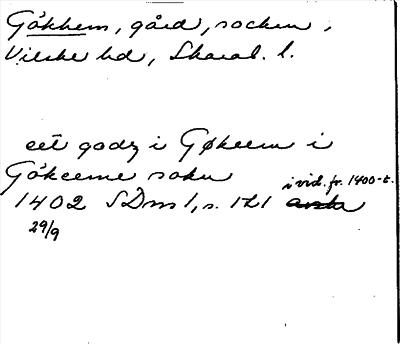 Gökhem, gård, socken,
Vilske hd, Skarab. l.
eet godz i Gøkeem i
Gökeeme sokn
i vid. fr. 1400-t.
1402 SDns 1, s. 121
29/9